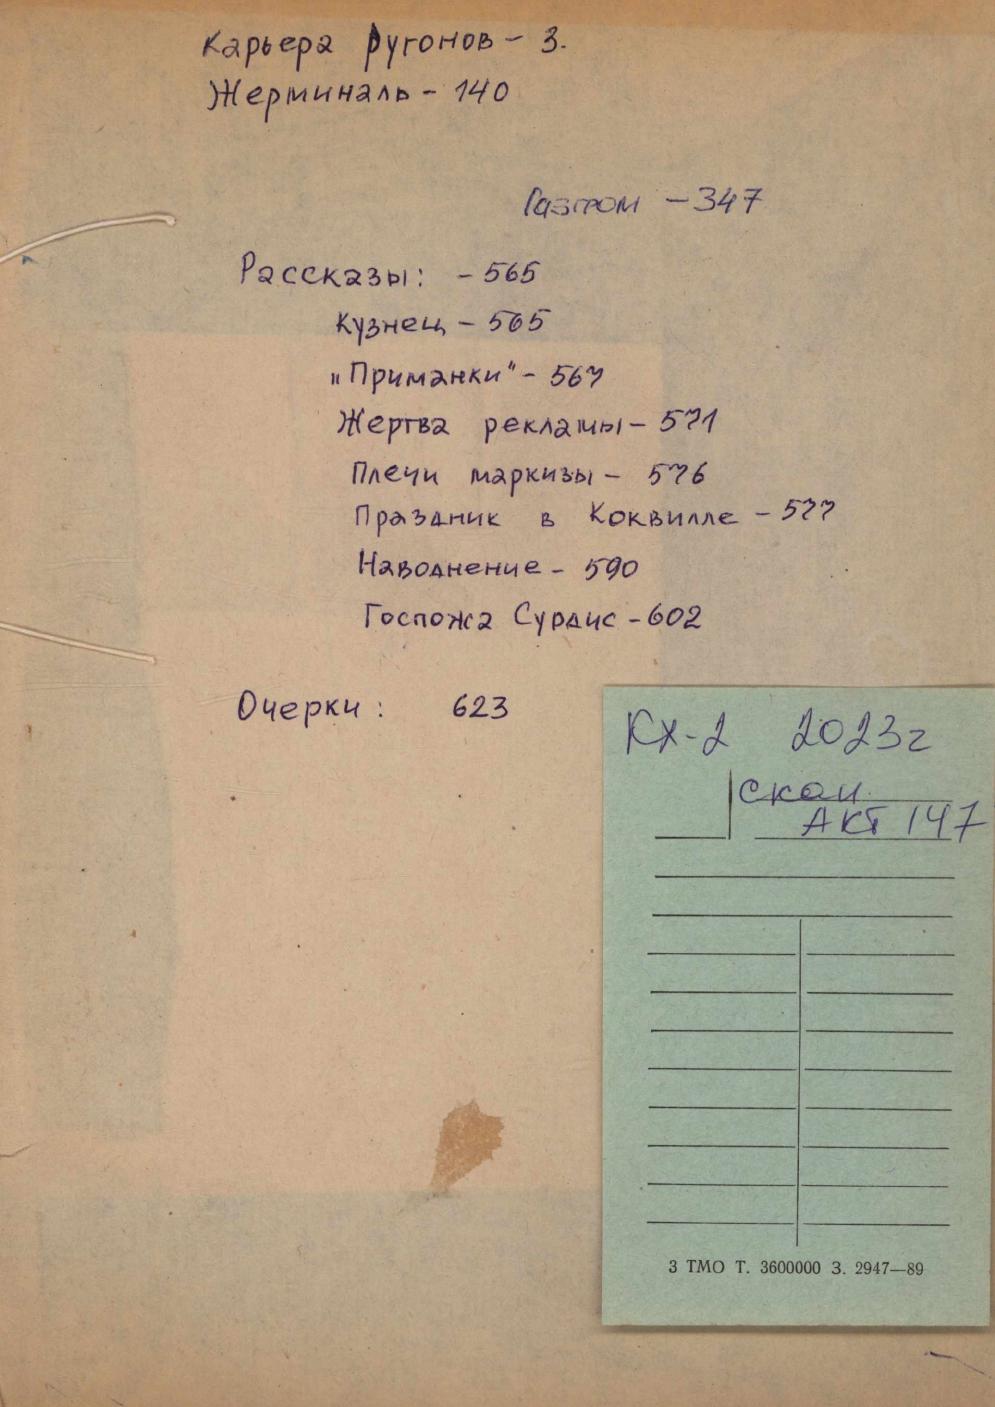 Карьера Ругонов - 3.
Жерминаль - 140
Разгром - 347
Рассказы: - 565
Кузнец - 565
„Приманки" - 567
Жертва рекламы - 571
Плечи маркизы - 576
Праздник в Коквилле - 577
Наводнение - 590
Госпожа Сурдис - 602
Очерки: 623
КХ-2 2023г
скан.
АКТ 147
3 ТМО Т. 3600000 З. 2947—89